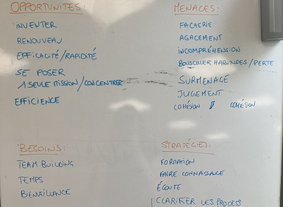 OPPORTUNITES:
INVENTER
RENOUVEAU
EFFICACITÉ/RAPIDITÉ
SE POSER
1 SEULE MISSION/CONCENTRER
EFFICIENCE
MENACES:
FACTERIE
AGACEMENT
INCOMPRÉHENSION
BOUSCULER HABITUDES/PERTE
SURMENAGE
JUGEMENT
COHÉSION COHÉSION
BESOINS:
TEAM BUILDING
TEMPS
BIENVEILLANCE
STRATÉGIES:
FORMATION
FAIRE CONNAISSANCE
ÉCOUTE
CLARIFIER LES PROCESS